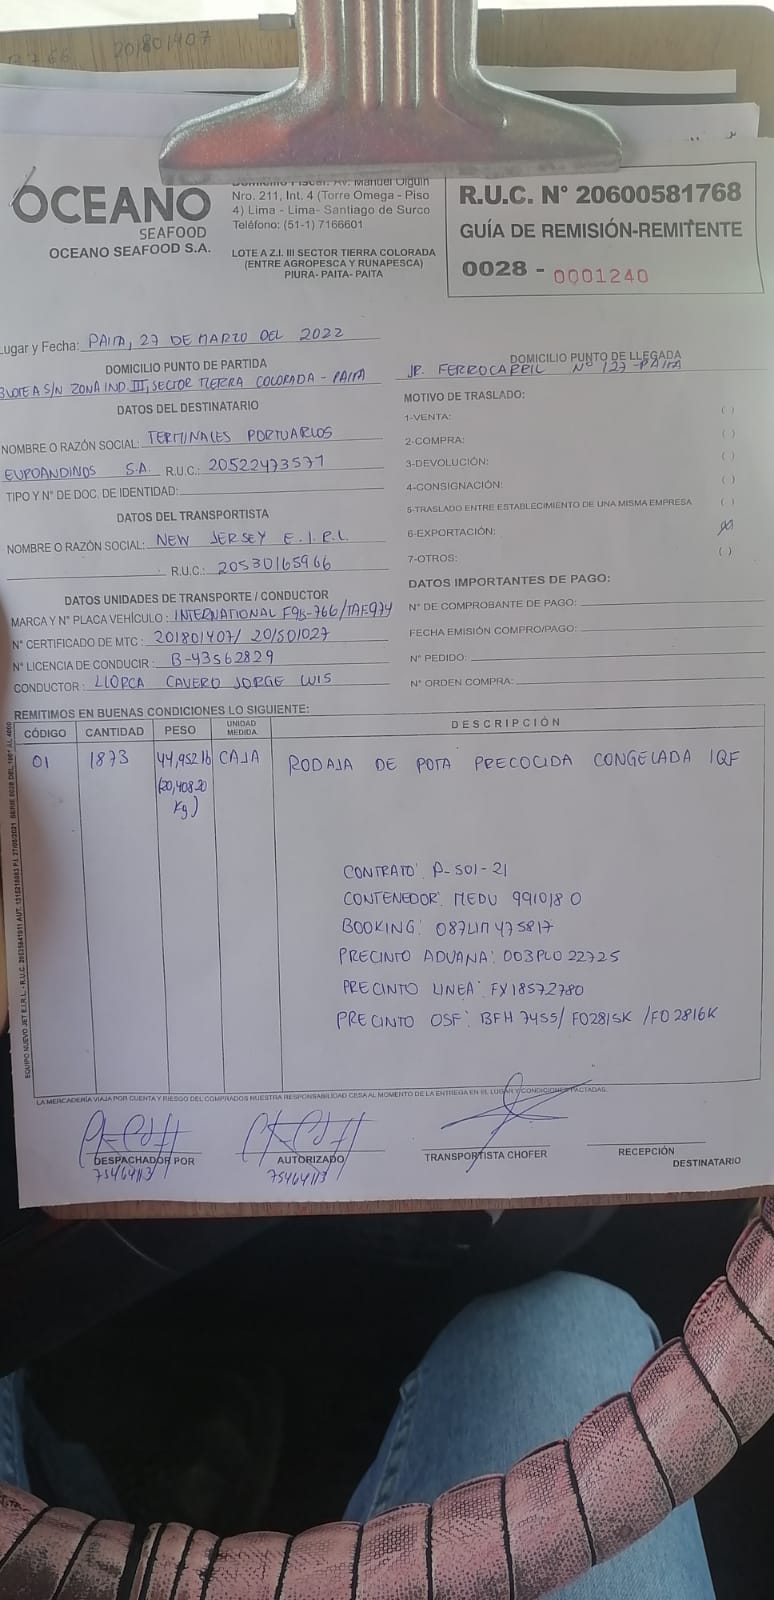 201801407
OCEANO
SEAFOOD
OCEANO SEAFOOD S.A.
Domicilio Fiscal: Av. Manuel Olguin
Nro. 211, Int. 4 (Torre Omega - Piso
4) Lima - Lima- Santiago de Surco
Teléfono: (51-1) 7166601
LOTE A Z.I. III SECTOR TIERRA COLORADA
(ENTRE AGROPESCA Y RUNAPESCA)
PIURA- PAITA- PAITA
R.U.C. N° 20600581768
GUÍA DE REMISIÓN-REMITENTE
0028 - 0001240
Lugar y Fecha: PAITA, 27 DE MARZO DEL 2022
DOMICILIO PUNTO DE PARTIDA
LOTE A S/N ZONA IND III, SECTOR TIERRA COLORADA - PAITA
DOMICILIO PUNTO DE LLEGADA
JR. FERROCARRIL N° 127 - PAITA
DATOS DEL DESTINATARIO
NOMBRE O RAZÓN SOCIAL: TERMINALES PORTUARIOS
EUROANDINOS S.A. R.U.C.: 20522473571
TIPO Y N° DE DOC. DE IDENTIDAD:
DATOS DEL TRANSPORTISTA
NOMBRE O RAZÓN SOCIAL: NEW JERSEY E.I.R.L.
R.U.C.: 20530165966
MOTIVO DE TRASLADO:
1-VENTA: ( )
2-COMPRA: ( )
3-DEVOLUCIÓN: ( )
4-CONSIGNACIÓN: ( )
5-TRASLADO ENTRE ESTABLECIMIENTO DE UNA MISMA EMPRESA ( )
6-EXPORTACIÓN: (X)
7-OTROS: ( )
DATOS UNIDADES DE TRANSPORTE / CONDUCTOR
MARCA Y N° PLACA VEHÍCULO: INTERNATIONAL F9B-766/TAF974
N° CERTIFICADO DE MTC: 201801407/ 201501027
N° LICENCIA DE CONDUCIR: B-43562829
CONDUCTOR: LLORCA CAVERO JORGE LUIS
DATOS IMPORTANTES DE PAGO:
N° DE COMPROBANTE DE PAGO:
FECHA EMISIÓN COMPRO/PAGO:
N° PEDIDO:
N° ORDEN COMPRA:
REMITIMOS EN BUENAS CONDICIONES LO SIGUIENTE:
CÓDIGO CANTIDAD PESO UNIDAD MEDIDA DESCRIPCIÓN
01 1873 44,952 lb CAJA RODAJA DE POTA PRECOCIDA CONGELADA IQF
(20,408.20
Kg)
CONTRATO: P-501-21
CONTENEDOR: MEDU 991018 0
BOOKING: 087LM475817
PRECINTO ADUANA: 003PLO22725
PRECINTO LINEA: FX18572780
PRECINTO OSF: BFH 7455/ F02815K /F02816K
LA MERCADERÍA VIAJA POR CUENTA Y RIESGO DEL COMPRADOS NUESTRA RESPONSABILIDAD CESA AL MOMENTO DE LA ENTREGA EN EL LUGAR Y CONDICIONES PACTADAS.
DESPACHADOR POR
75464113
AUTORIZADO
75464113
TRANSPORTISTA CHOFER
RECEPCIÓN
DESTINATARIO